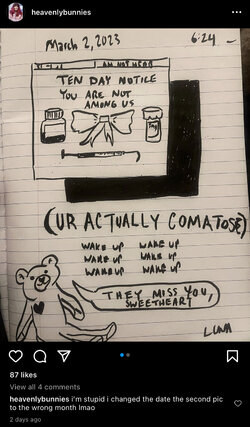 heavenlybunnies
March 2, 2023
6:24
I AM NOT HERE
TEN DAY NOTICE
YOU ARE NOT
AMONG US
(UR ACTUALLY COMATOSE)
WAKE UP WAKE UP
WAKE UP WAKE UP
WAKE UP WAKE UP
THEY MISS YOU,
SWEETHEART
LUNA
87 likes
View all 4 comments
heavenlybunnies i'm stupid i changed the date the second pic
to the wrong month lmao
2 days ago